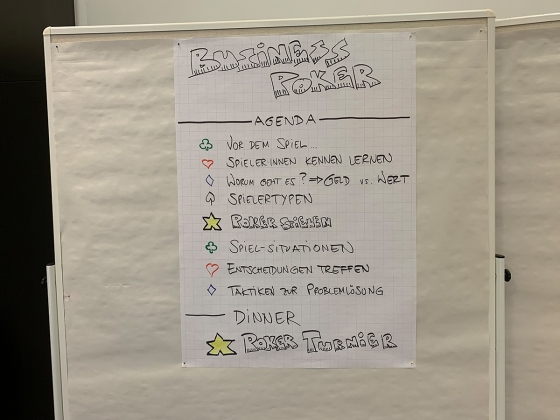 BUSINESS
POKER
AGENDA
VOR DEM SPIEL...
SPIELER:INNEN KENNEN LERNEN
WORUM GEHT ES? ⇒ GELD VS. WERT
SPIELERTYPEN
POKER SEHEN
SPIEL-SITUATIONEN
ENTSCHEIDUNGEN TREFFEN
TAKTIKEN ZUR PROBLEMLÖSUNG
DINNER
POKER TURNIER